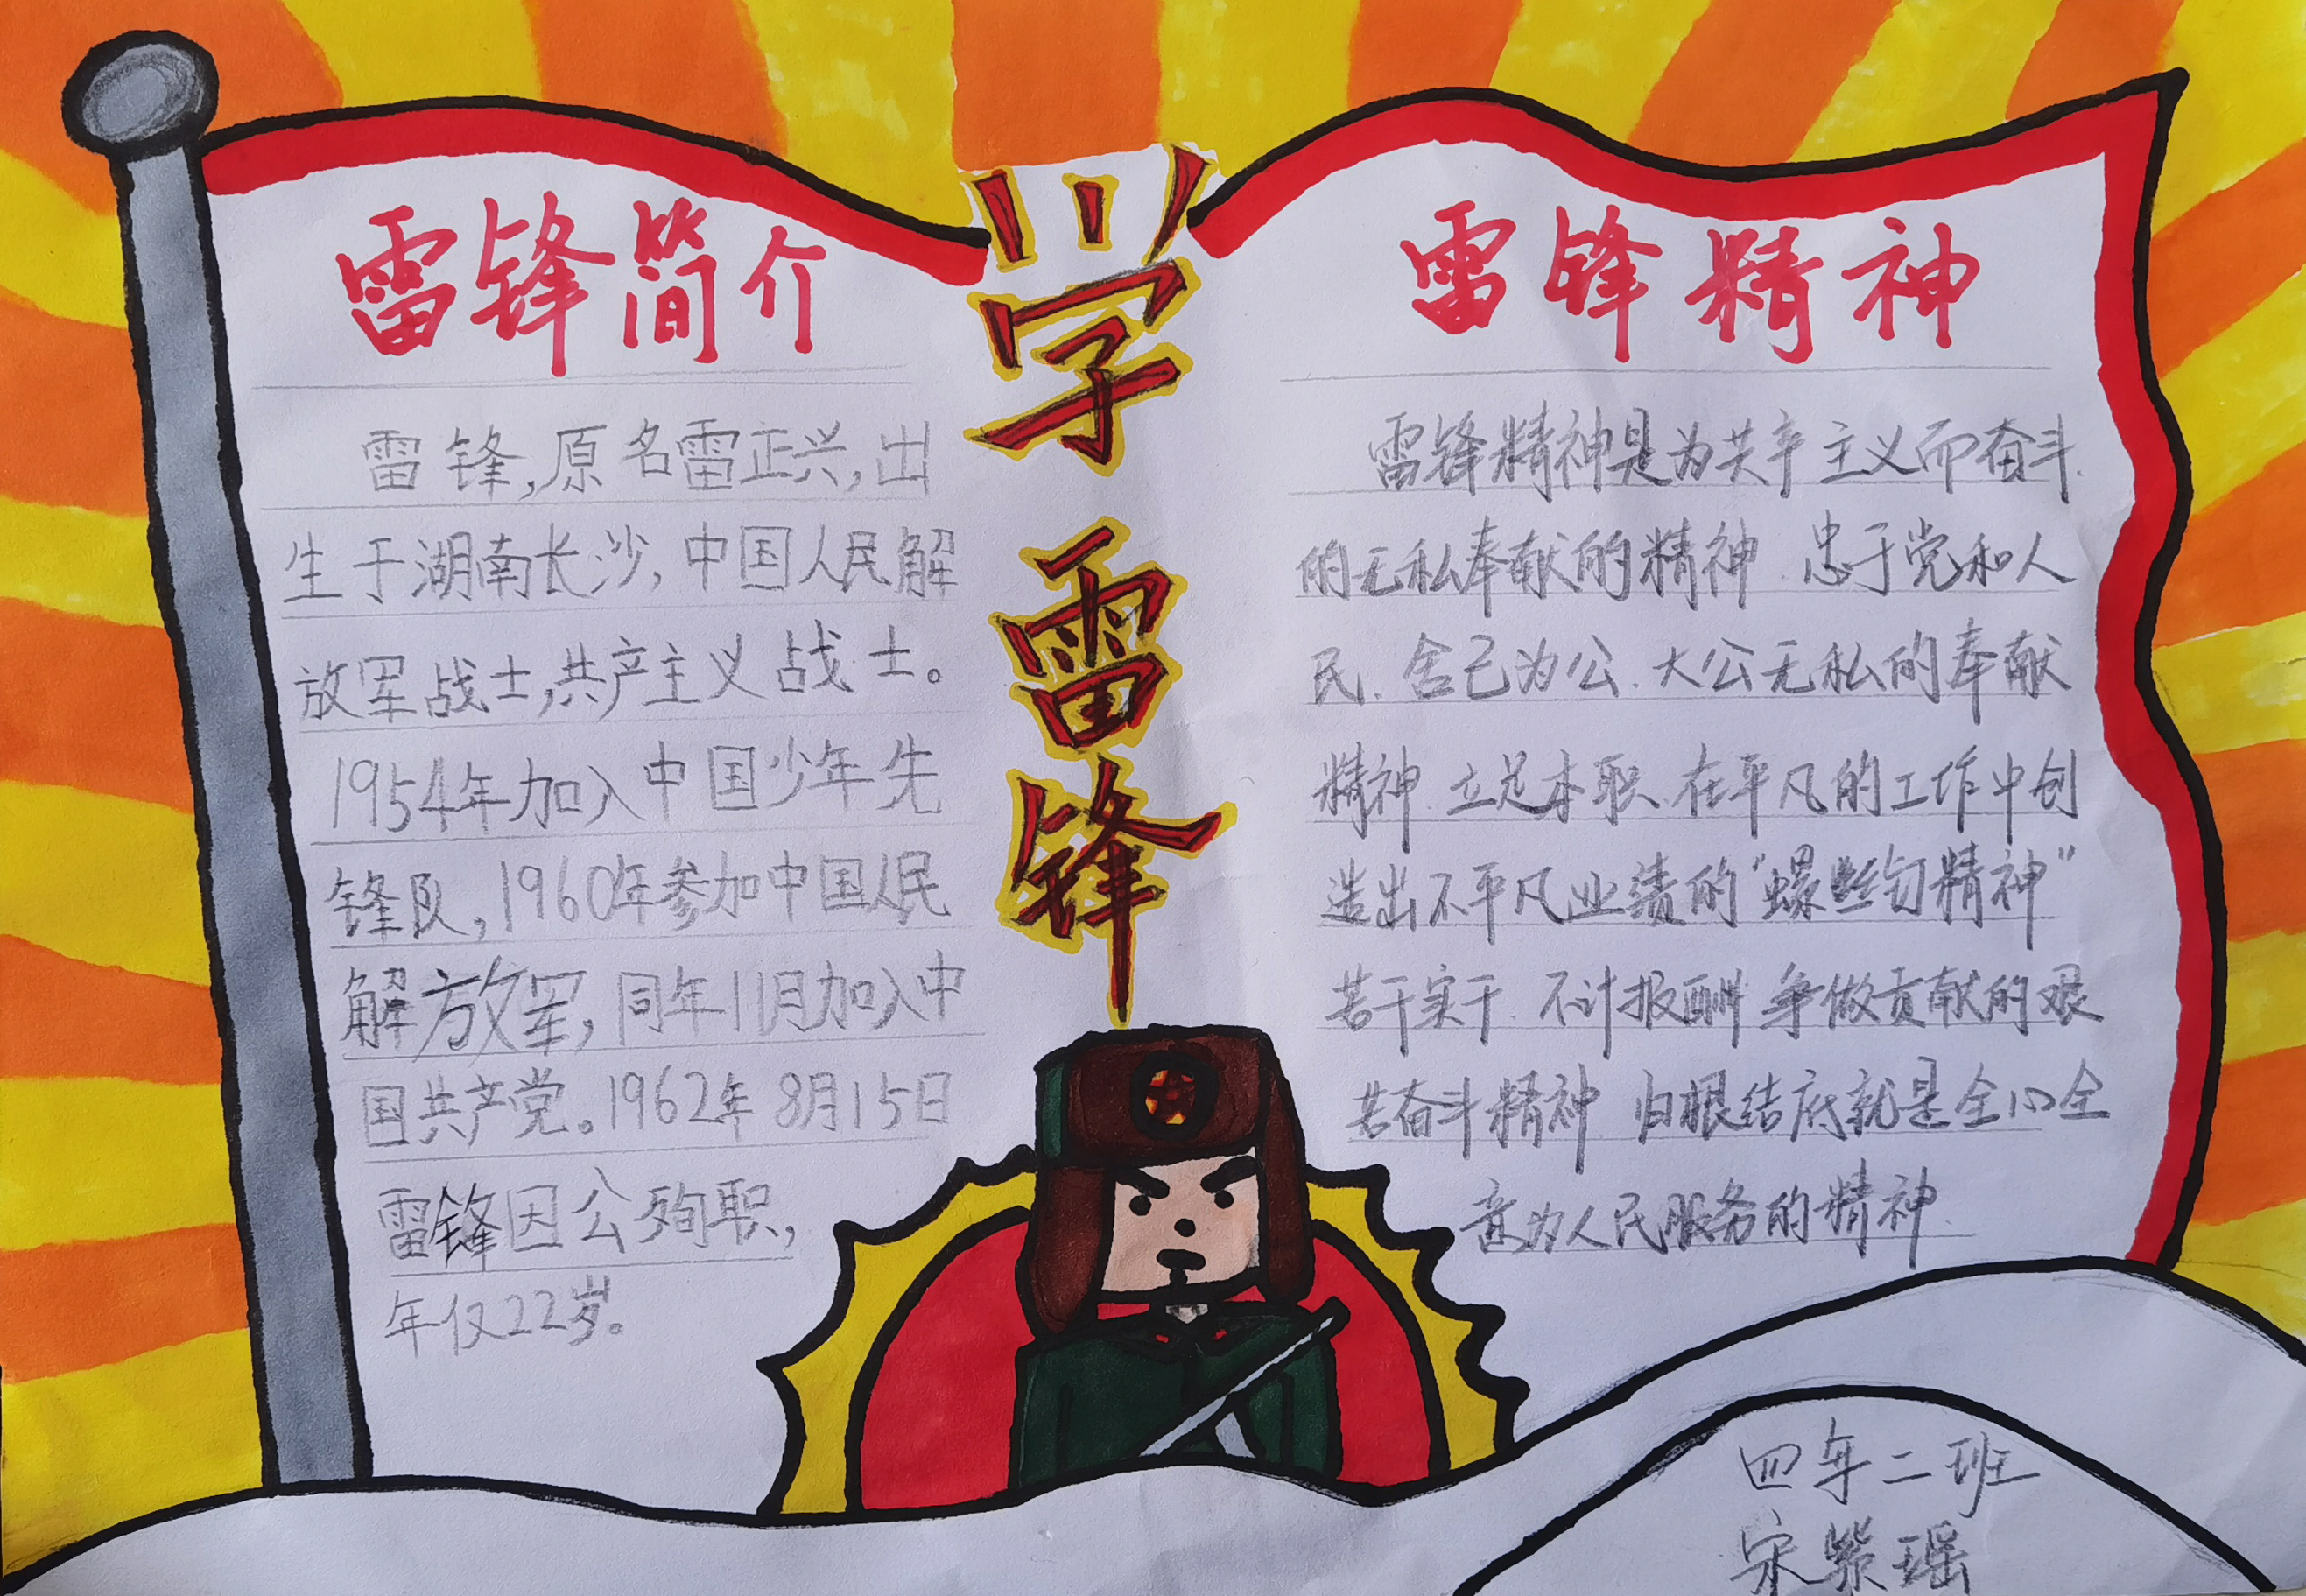 雷锋简介
雷锋,原名雷正兴,出
生于湖南长沙,中国人民解
放军战士,共产主义战士。
1954年加入中国少年先
锋队,1960年参加中国人民
解放军,同年11月加入中
国共产党。1962年8月15日
雷锋因公殉职,
年仅22岁。
学
雷
锋
雷锋精神
雷锋精神是为共产主义而奋斗.
的无私奉献的精神.忠于党和人
民.舍己为公.大公无私的奉献
精神.立足本职.在平凡的工作中创
造出不平凡业绩的"螺丝钉精神"
苦干实干.不计报酬.争做贡献的艰
苦奋斗精神 归根结底就是全心全
意为人民服务的精神.
四年二班
宋紫瑶